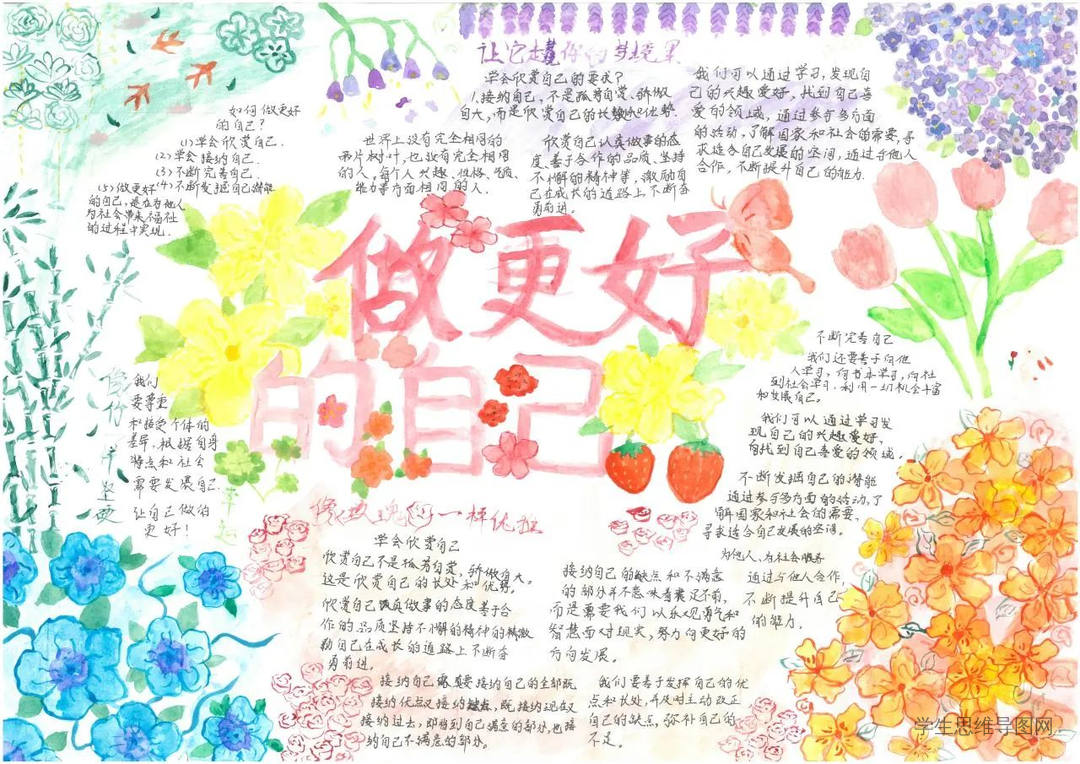 如何做更好
的自己？
(1)学会欣赏自己.
(2)学会接纳自己.
(3)不断完善自己
(4)不断发掘自己潜能
(5)做更好
的自己,是在为他人
为社会带来福祉
的过程中实现.
世界上没有完全相同的
两片树叶,也没有完全相同
的人,每个人兴趣、性格、气质、
能力等方面相同的人.
学会欣赏自己的要求?
1.接纳自己,不是孤芳自赏、骄傲
自大,而是欣赏自己的长处和优势.
欣赏自己认真做事的态
度、善于合作的品质、坚持
不懈的精神等,激励自
己在成长的道路上不断奋
勇前进.
我们可以通过学习,发现自
己的兴趣爱好,找到自己喜
爱的领域,通过参与多方面
的活动,了解国家和社会的需要,寻
求适合自己发展的空间,通过与他人
合作,不断提升自己的能力.
做更好
的自己
我们
要尊重
和接受个体的
差异,根据自身
特点和社会
需要发展自己.
让自己做的
更好!
不断完善自己
我们还要善于向他
人学习,向书本学习,向社
到社会学习.利用一切机会丰富
和发展自己.
我们可以通过学习发
现自己的兴趣爱好,
找到自己喜爱的领域.
不断发掘自己的潜能
通过参与多方面的活动,了
解国家和社会的需要,
寻求适合自己发展的空间.
为他人,为社会服务
通过与他人合作,
不断提升自己
的能力.
像玫瑰一样优雅
学会欣赏自己
欣赏自己不是孤芳自赏、骄傲自大.
这是欣赏自己的长处和优势.
欣赏自己认真做事的态度善于合
作的品质坚持不懈的精神的精激
励自己在成长的道路上不断奋
勇前进.
接纳自己的缺点和不满意
的部分并不意味着裹足不前,
而是需要我们以乐观勇气和
智慧面对现实,努力向更好的
方向发展.
接纳自己需要接纳自己的全部既
接纳优点又接纳缺点,既接纳现在又
接纳过去,即接纳自己满意的部分,也接
纳自己不满意的部分.
我们要善于发挥自己的优
点和长处,并及时主动改正
自己的缺点,弥补自己的
不足.
学生思维导图网